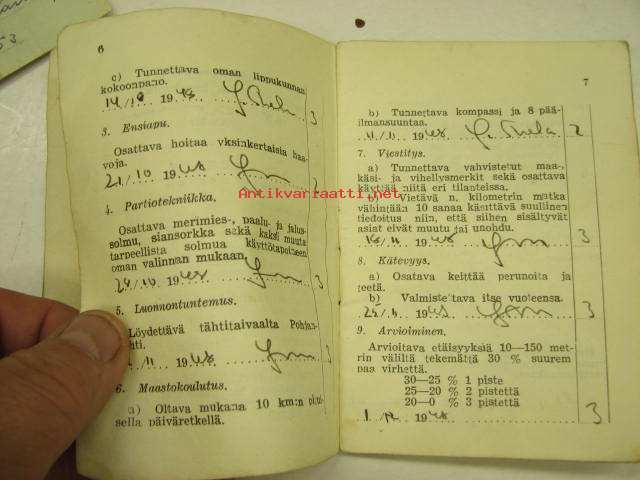 53
6
c) Tunnettava oman lippukunnan
kokoonpano.
14/10 1948 3
3. Ensiapu.
Osattava hoitaa yksinkertaisia haa-
voja.
21/10 1948 3
4. Partiotekniikka.
Osattava merimies-, paalu- ja jalus-
solmu, siansorkka sekä kaksi muuta
tarpeellista solmua käyttötapoineen
oman valinnan mukaan
1948 3
5. Luonnontuntemus.
Löydettävä tähtitaivaalta Pohjan-
tähti.
1948 3
6. Maastokoulutus.
a) Oltava mukana 10 km:n
sella päiväretkellä.
7
b) Tunnettava kompassi ja 8 pää-
ilmansuuntaa.
1948 2
7. Viestitys.
a) Tunnettava vahvistetut maa-,
käsi- ja vihellysmerkit sekä osattava
käyttää niitä eri tilanteissa.
b) Vietävä n. kilometrin matka
vähintään 10 sanaa käsittävä suullinen
tiedoitus niin, että siihen sisältyvät
asiat eivät muutu tai unohdu.
1948 3
8. Kätevyys.
a) Osattava keittää perunoita ja
teetä.
b) Valmistettava itse vuoteensa.
25/11 1948 3
9. Arvioiminen.
Arvioitava etäisyyksiä 10—150 met-
rin väliltä tekemättä 30 % suurem-
paa virhettä.
30—25 % 1 piste
25—20 % 2 pistettä
20—0 % 3 pistettä
1/12 1948 3
Antikvariaatti.net